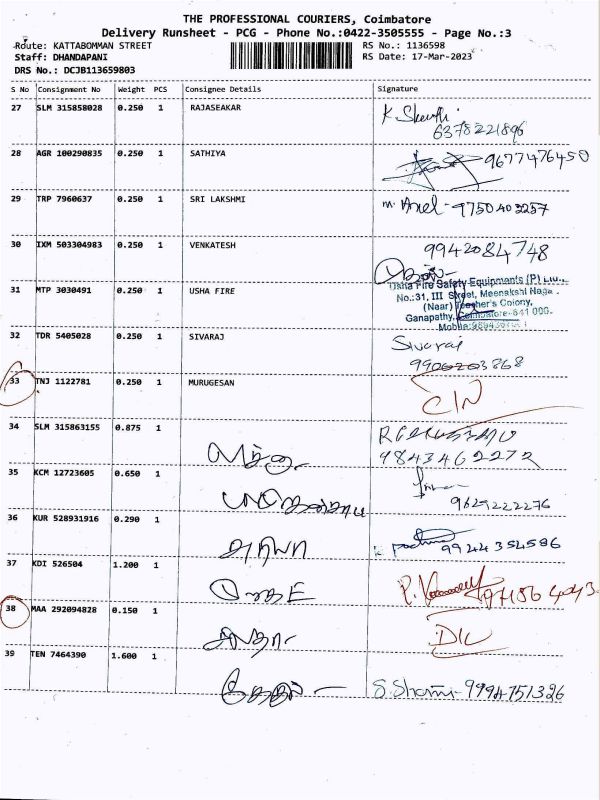 THE PROFESSIONAL COURIERS, Coimbatore
Delivery Runsheet - PCG - Phone No.:0422-3505555 - Page No.:3
Route: KATTABOMMAN STREET
RS No.: 1136598
Staff: DHANDAPANI
RS Date: 17-Mar-2023
DRS No.: DCJB113659803
S No Consignment No Weight PCS Consignee Details Signature
27 SLM 315858028 0.250 1 RAJASEAKAR
6378221896
28 AGR 100290835 0.250 1 SATHIYA 9677476450
29 TRP 7960637 0.250 1 SRI LAKSHMI 9750403257
30 IXM 503304983 0.250 1 VENKATESH 9942084748
31 MTP 3030491 0.250 1 USHA FIRE
Usha Fire Safety Equipments (P) Ltd.,
No.:31, III Street, Meenakshi Naga
(Near) Teacher's Colony,
Ganapathy, Coimbatore-641 006.
Mobile:
32 TDR 5405028 0.250 1 SIVARAJ Sivaraj
33 TNJ 1122781 0.250 1 MURUGESAN
34 SLM 315863155 0.875 1
9843462272
35 KCM 12723605 0.650 1
9629222276
36 KUR 528931916 0.290 1 9944354586
37 KDI 526504 1.200 1
38 MAA 292094828 0.150 1
39 TEN 7464390 1.600 1
S. Sharmi 9994751326